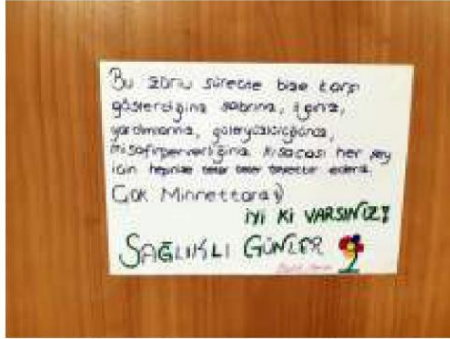 Bu zorlu süreçte bize karşı
gösterdiğiniz sabrınız, ilginiz,
yardımlarınız, güleryüzlülüğünüz,
misafirperverliğiniz kısacası her şey
için hepinize teker teker teşekkür ederiz.
Çok Minnettarız
İYİ Kİ VARSINIZ!
SAĞLIKLI GÜNLER